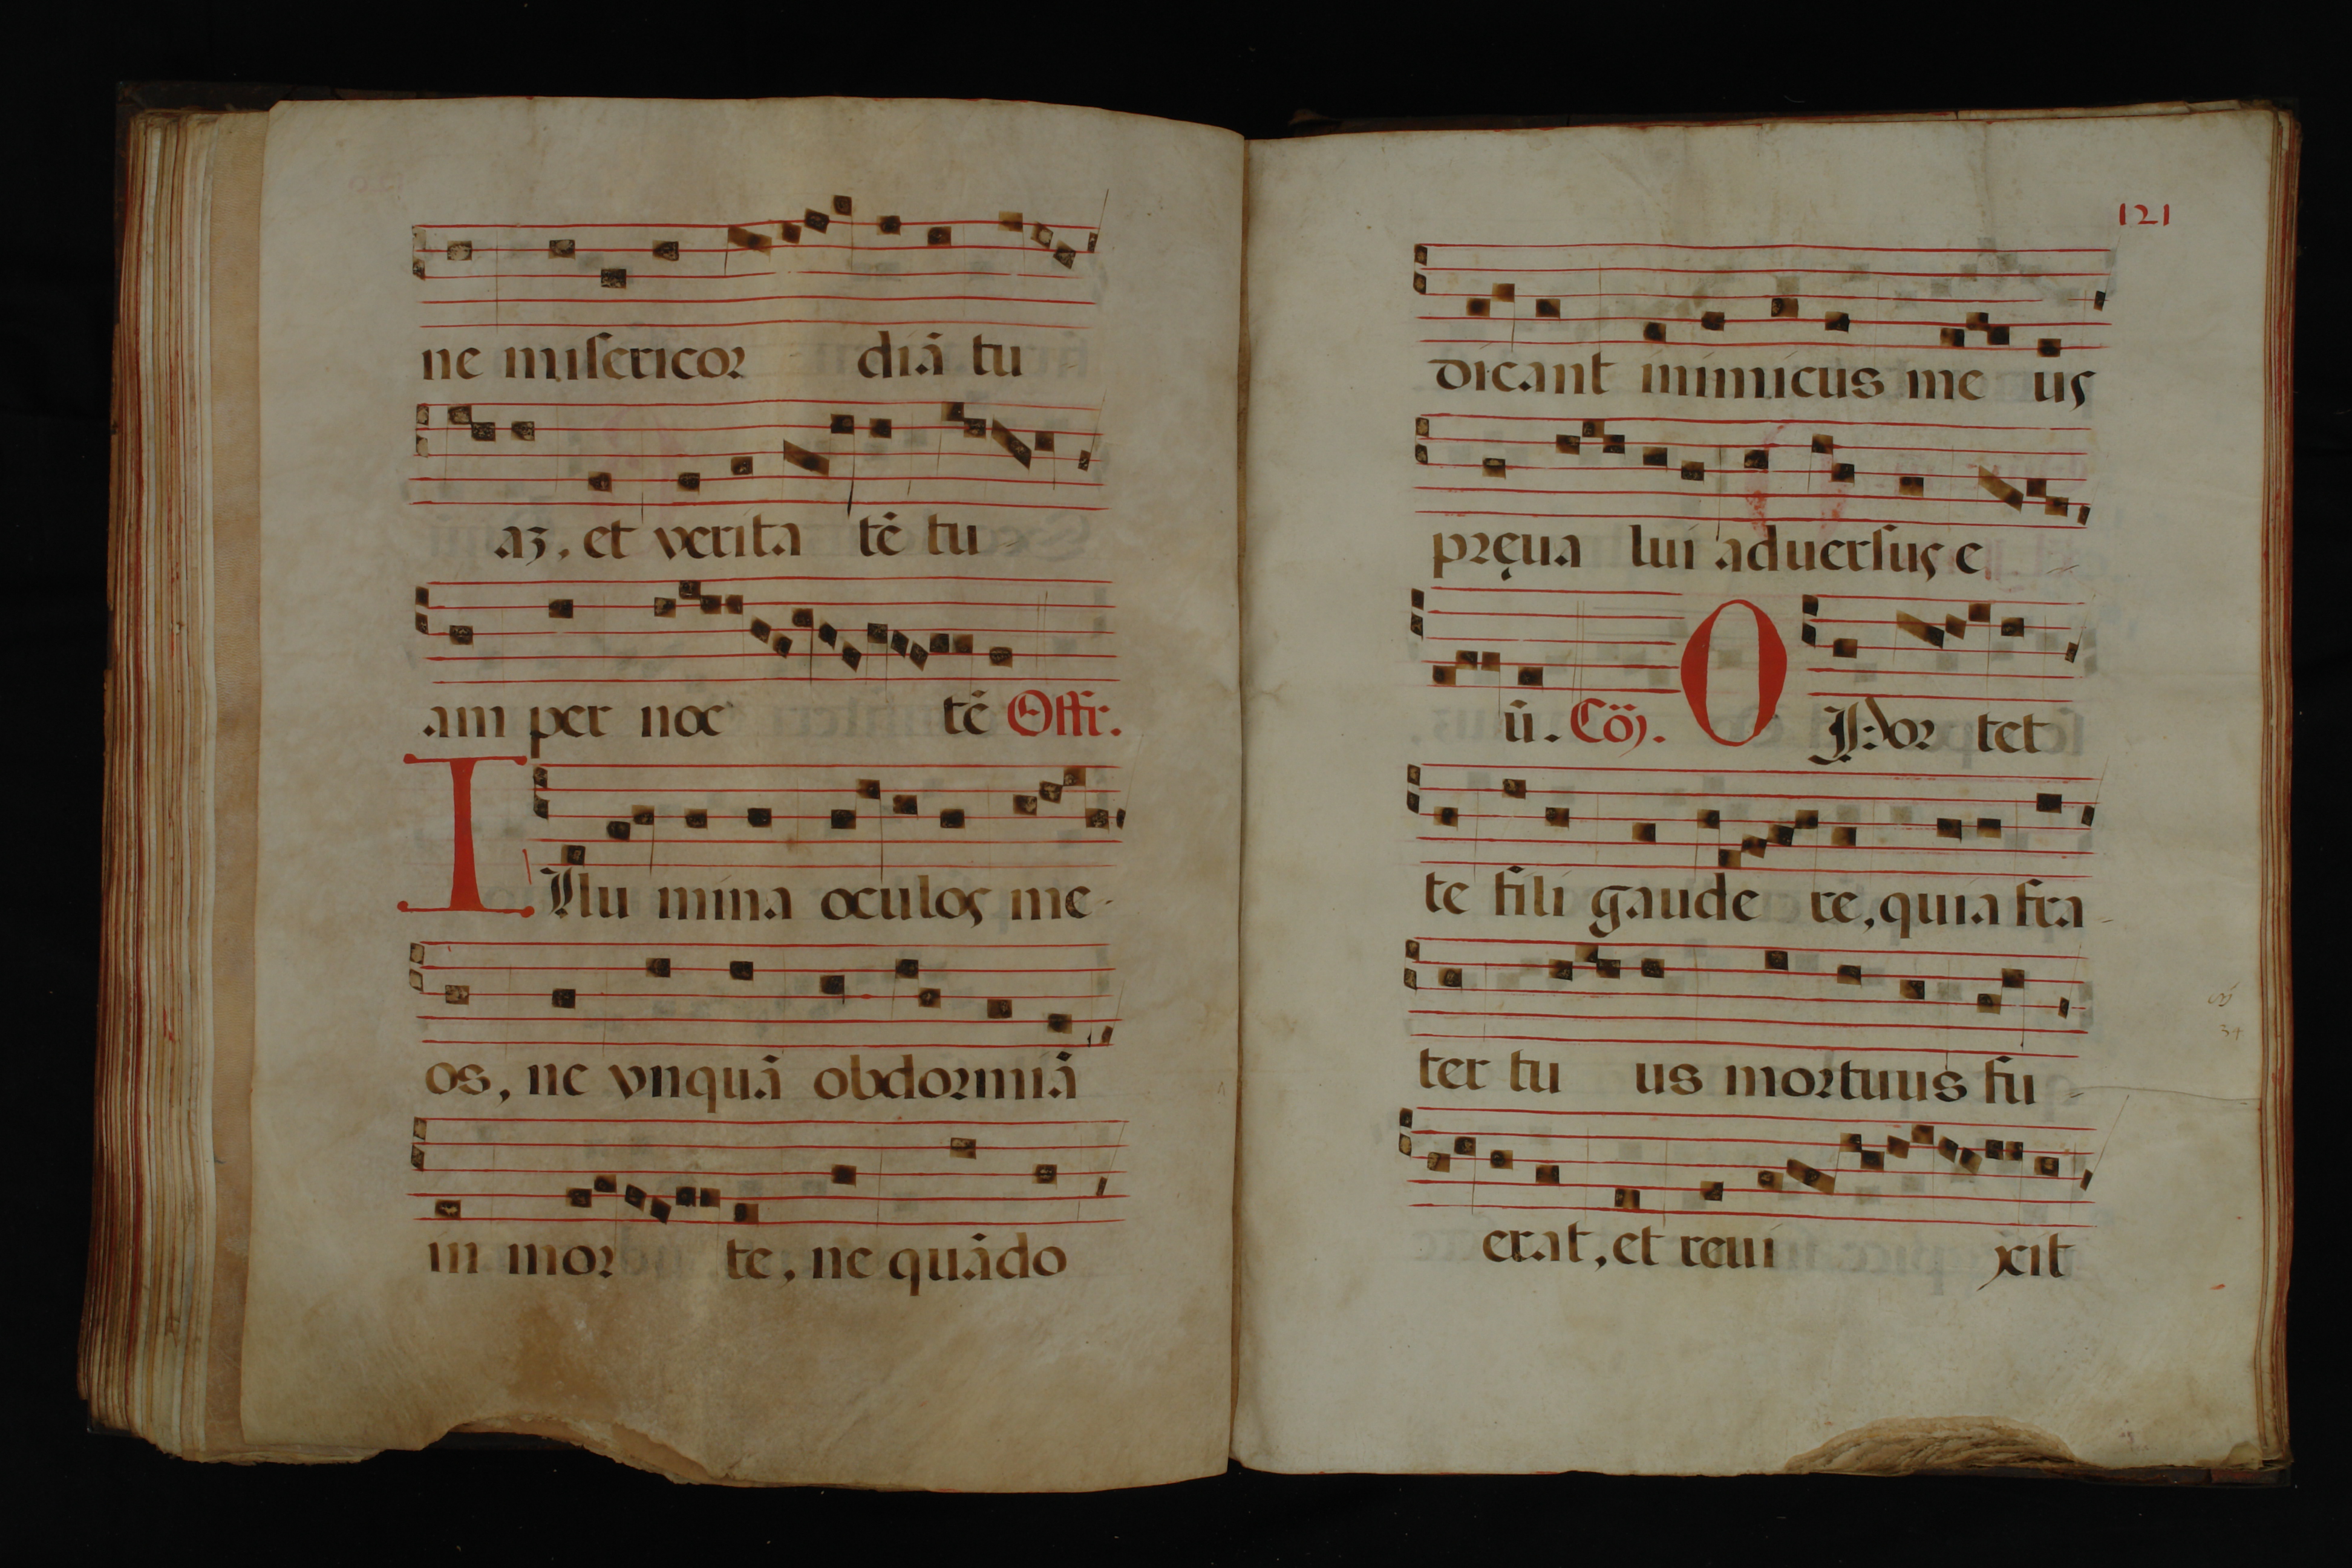 ne misericor diā tu-
aʒ, et verita tē tu-
am per noc tē Offr.
I Llu mina oculos me-
os, ne vnquā obdormiā
in mor te, ne quādo
121
dicant inimicus me us
pręua lui aduersus e-
ū. Cōⱥ. O Por tet
te fili gaude re, quia fra-
ter tu us mortuus fu-
erat, et reui xit